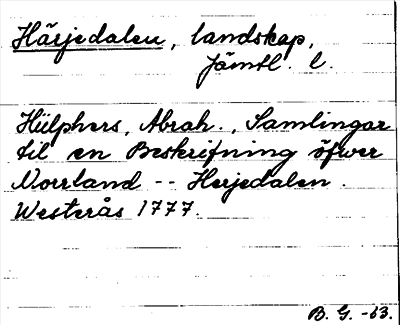 Härjedalen, landskap,
Jämtl. l.
Hülphers, Abrah., Samlingar
til en Beskrifning öfwer
Norrland -- Herjedalen.
Westerås 1777.
B. G. -63.